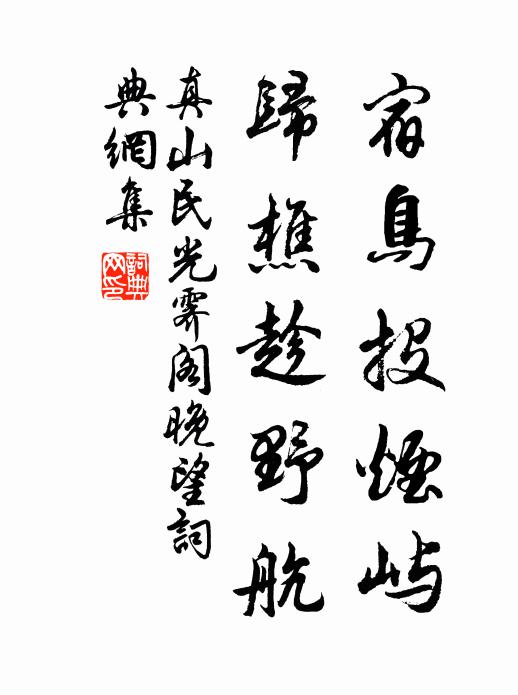 宿鳥投煙嶼
歸樵趁野航
真山民光霽閣晚望詞
典網集
詞典網印